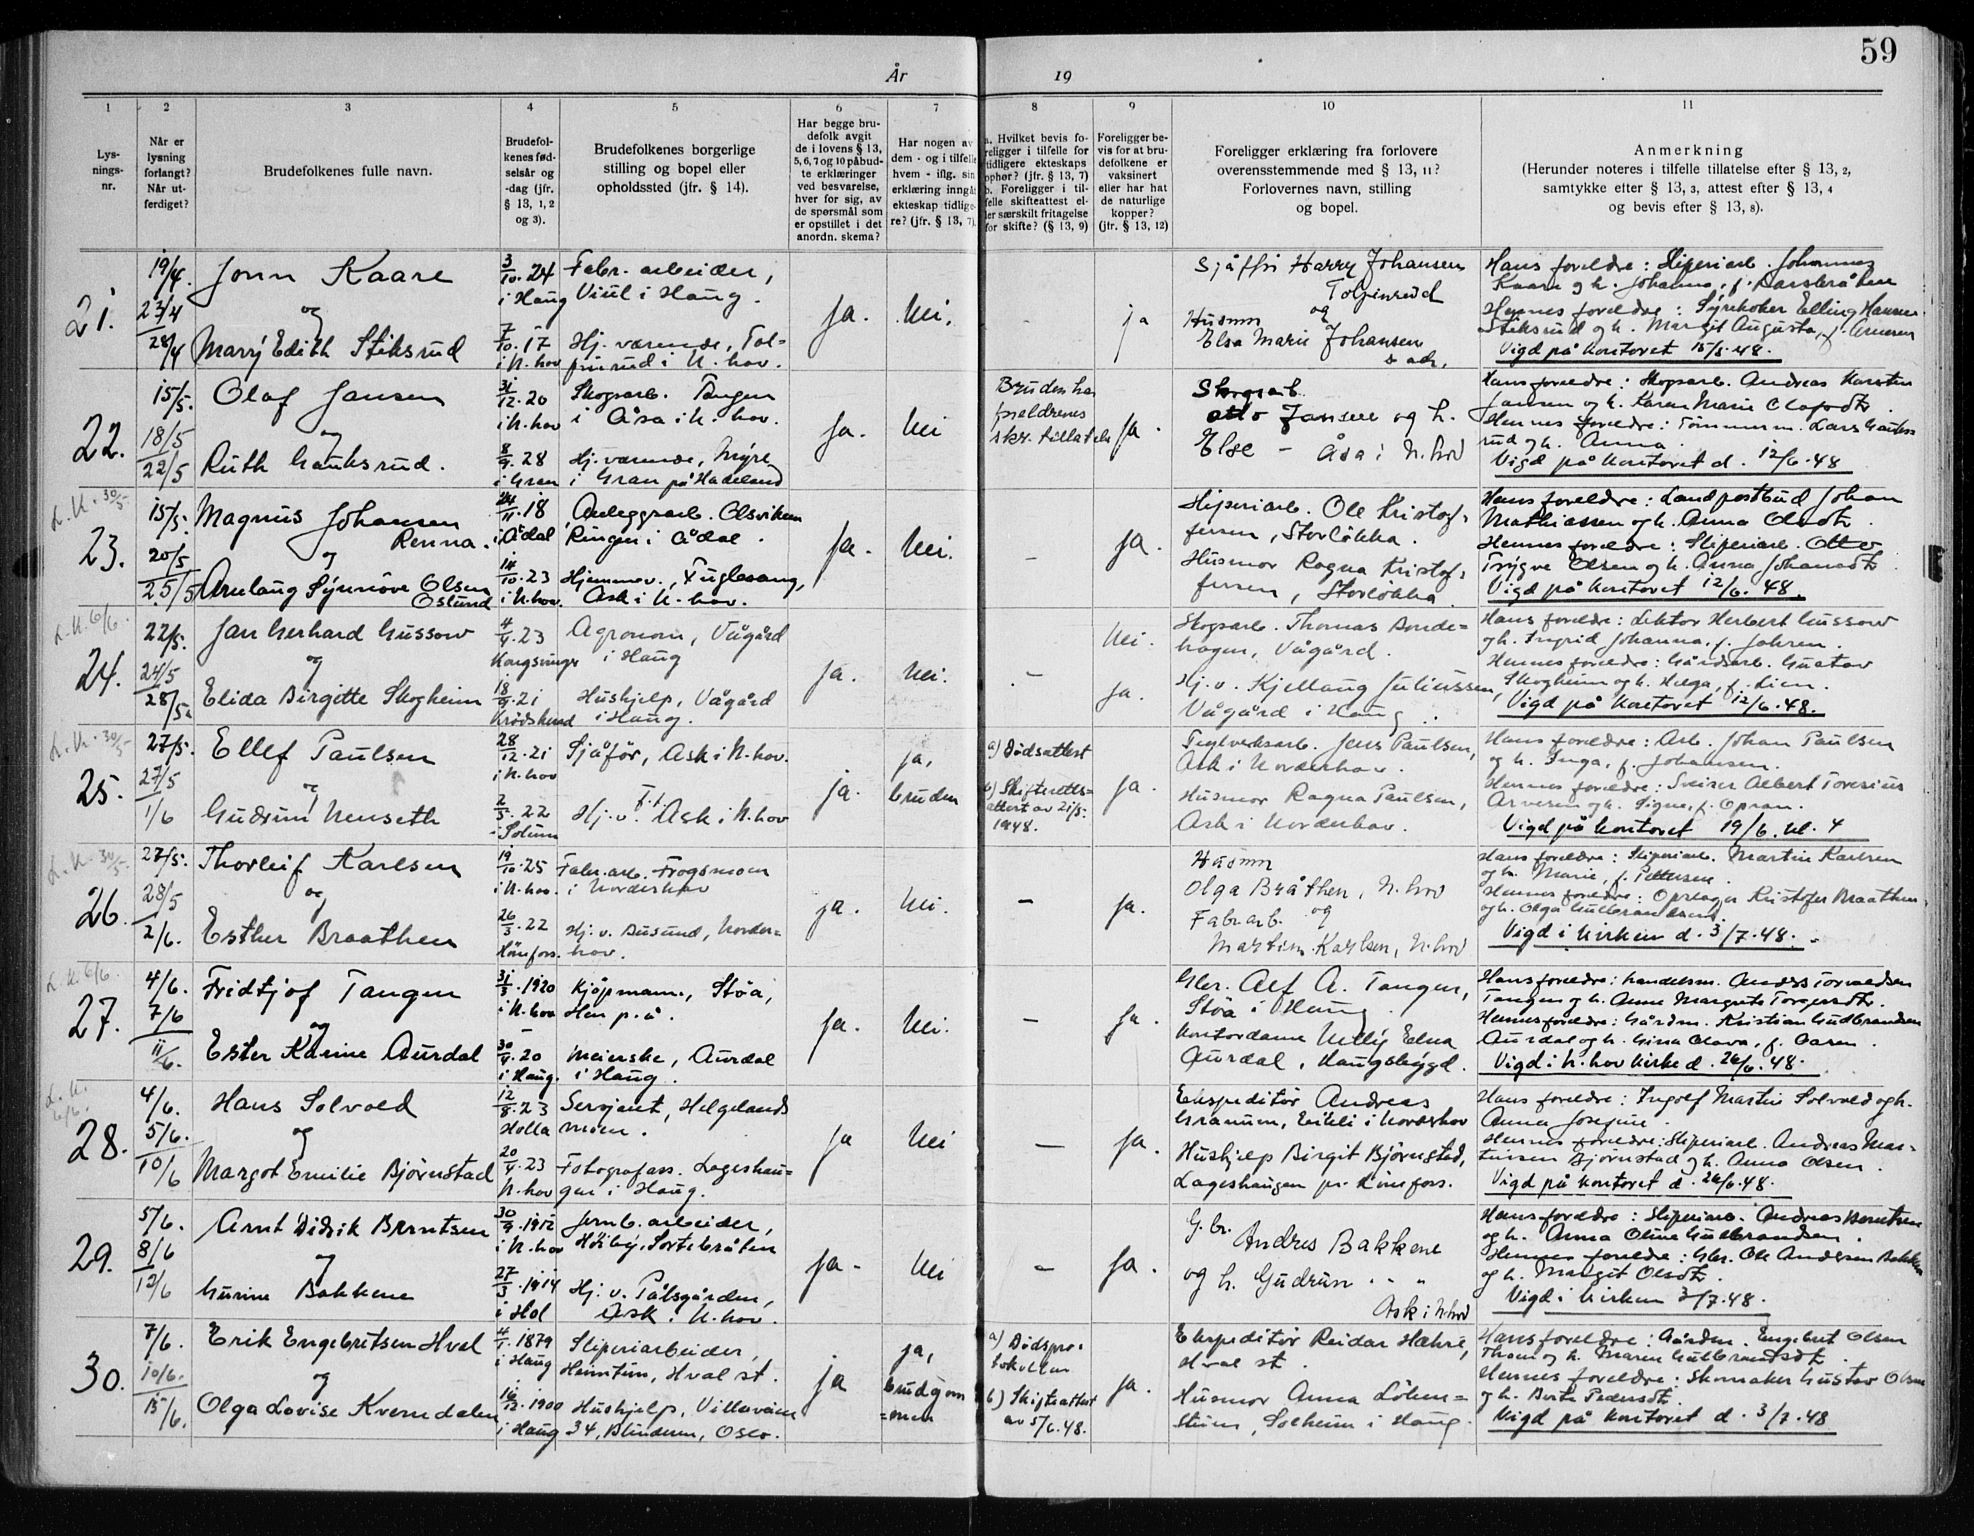 59
År 19
1 2 3 4 5 6 7 8 9 10 11
Lys-
nings-
nr.
Når er
lysning
forlangt?
Når ut-
ferdiget?
Brudefolkenes fulle navn.
Brudefol-
kenes fød-
selsår og
-dag (jfr.
§ 13, 1, 2
og 3).
Brudefolkenes borgerlige
stilling og bopel eller
opholdssted (jfr. § 14).
Har begge bru-
defolk avgit
de i lovens § 13,
5, 6, 7 og 10 påbud-
te erklæringer
ved besvarelse,
hver for sig, av
de spørsmål som
er opstillet i det
anordn. skema?
Har nogen av
dem - og i tilfelle
hvem - iflg. sin
erklæring inngåt
ekteskap tidlige-
re? (jfr. § 13, 7).
a. Hvilket bevis fo-
religger i tilfelle for
tidligere ekteskaps
ophør? (jfr. § 13, 7)
b. Foreligger i til-
felle skifteattest el-
ler særskilt fritagelse
for skifte? (§ 13, 9)
Foreligger be-
vis for at bru-
defolkene er
vaksinert
eller har hat
de naturlige
kopper?
(jfr. § 13, 12)
Foreligger erklæring fra forlovere
overensstemmende med § 13, 11?
Forlovernes navn, stilling
og bopel.
Anmerkning
(Herunder noteres i tilfelle tillatelse efter § 13, 2,
samtykke efter § 13, 3, attest efter § 13, 4
og bevis efter § 13, 8).
21.
19/4.
23/4
28/4
Jonn Kaare
og
Marry Edith Stiksrud
3/10.24
i Haug
7/10.17
i N.hov
Fabr. arbeider,
Viul i Haug.
Hj. værende, Tol-
pinrud i N. hov.
Ja.
Nei.
-
ja
Sjåffør Harry Johansen
Tolpinrud
og
Husmor
Elsa Marie Johansen
s. adr.
Hans foreldre: Sliperiarb. Johannes
Kaare og h. Johanna, f.
Hennes foreldre: Syrekoker Elling Hansen
Stiksrud og h. Margit Augusta, f. Arnesen
Vigd på kontoret 15/5.48.
22.
15/5.
18/5
22/5
Olaf Jansen
og
Ruth Gauksrud.
31/12.20
i N.hov
8/9.28
i Gran
Skogsarb. Tangen
i Åsa i N. hov.
Hj. værende, Myre
i Gran på Hadeland
Ja.
Nei
Bruden har
foreldrenes
skr. tillatelse
Ja.
Skogsarb
Otto Jansen og h.
Else - Åsa i N. hov
Hans foreldre: Skogsarb. Andreas Karsten
Jansen og h. Karen Marie Olafsdtr.
Hennes foreldre: Tømmerm. Lars Gauks-
rud og h. Anna.
Vigd på kontoret d. 12/6.48
L.K. 30/5
23.
15/5.
20/5
25/5
Magnus Johansen
Renna.
og
Arnlaug Synnøve Olsen
Oslund
24/11.18
i Ådal
14/10.23
i N.hov.
Anleggsarb. Olsviken
Ringen i Ådal.
Hjemmev., Fuglesang,
Ask i N. hov.
Ja.
Nei.
-
Ja.
Sliperiarb. Ole Kristof-
fersen, Storløkka.
Husmor Ragna Kristof-
fersen, Storløkka
Hans foreldre: Landpostbud Johan
Mathiassen og h. Anna Olsdtr.
Hennes foreldre: Sliperiarb. Otto
Trygve Olsen og h. Anna Johansdtr.
Vigd på kontoret 12/6.48.
L.K. 6/6.
24.
22/5.
24/5
28/5
Jan Gerhard Gussow
og
Elida Birgitte Skogheim
4/4.23
Kongsvinger
18/9.21
Krødsherad
Agronom, Vågård
i Haug
Hushjelp, Vågård
i Haug.
Ja.
Nei.
-
Nei.
Ja.
Skogsarb. Thomas Bonde-
hagen, Vågård.
Hj. v. Kjellaug Juliussen,
Vågård i Haug.
Hans foreldre: Lektor Herbert Gussow
og h. Ingrid Johanna, f. Jahren.
Hennes foreldre: Gårdsarb. Gustav
Skogheim og h. Helga, f. Lien.
Vigd på kontoret 12/6.48.
L.K. 30/5
25.
27/5.
27/5
1/6
Ellef Paulsen
og
Gudrun Nenseth
28/12.21
i N.hov
2/5.22
i Solum
Sjåfør, Ask i N. hov.
Hj. v. f.t. Ask i N. hov
Ja.
Ja,
bruden
a) Dødsattest
b) Skifteretts-
attest av 21/5.
1948.
Ja.
Teglverksarb. Jens Paulsen,
Ask i Norderhov.
Husmor Ragna Paulsen,
Ask i Norderhov.
Hans foreldre: Arb. Johan Paulsen
og h. Inga, f. Johansen.
Hennes foreldre: Sveiser Albert Toresius
Arvesen og h. Signe, f. Opran.
Vigd på kontoret 19/6. kl. 4
L.K. 30/5.
26.
27/5.
28/5
2/6.
Thorleif Karlsen
og
Esther Braathen
19/10.25
i N.hov.
26/3.22
Hønefoss.
Fabr. arb. Frogsmoen
i Norderhov
Hj. v. Busund, Norder-
hov.
Ja.
Nei.
-
Ja.
Husmor
Olga Bråthen, N. hov
Fabr. arb. og
Martin Karlsen, N. hov
Hans foreldre: Sliperiarb. Martin Karlsen
og h. Marie, f. Pettersen.
Hennes foreldre: Oprager Kristofer Braathen
og h. Olga Gulbrandsen.
Vigd i kirken d. 3/7.48.
L.K. 6/6.
27.
4/6.
7/6
11/6.
Fridtjof Tangen
og
Ester Karine Aurdal
31/3.1920
i N.hov
30/9.20
i Haug.
Kjøpmann, Støa,
Hen p.å.
Meierske, Aurdal
i Haug.
Ja.
Nei.
-
Ja.
Gbr. Alf A. Tangen,
Støa i Haug.
Kontordame Nelly Edna
Aurdal, Haugsbygd.
Hans foreldre: Handelsm. Anders Torvaldsen
Tangen og h. Anne Margrete Torgersdtr.
Hennes foreldre: Gårdm. Kristian Gudbrandsen
Aurdal og h. Gina Olava, f. Aasen.
Vigd i N. hov kirke d. 26/6.48.
L.K.
6/6.
28.
4/6.
5/6.
10/6
Hans Solvold
og
Margot Emilie Bjørnstad
12/8.23
Holla
20/4.23
N.hov
Sersjant, Helgelands
moen.
Fotografass. Lageshau-
gen i Haug.
Ja
Nei
-
Ja.
Ekspeditør Andreas
Granum, Eikli i Norderhov
Hushjelp Birgit Bjørnstad,
Lageshaugen pr. Hønefoss.
Hans foreldre: Ingolf Martin Solvold og h.
Anna Josefine.
Hennes foreldre: Sliperiarb. Andreas Mar-
tinsen Bjørnstad og h. Anna Olsen.
Vigd på kontoret d. 26/6.48.
29.
5/6.
8/6
12/6
Arnt Didrik Berntsen
og
Gurine Bakkene
30/9.1912
i N.hov
27/3.1914
i Hol
Jernb. arbeider,
Høiby, Sortebråten
Hj. v. Pålsgården,
Ask i N. hov.
Ja-
Nei
-
Ja.
G.br. Andres Bakkene
og h. Gudrun " "
Ask i N.hov
Hans foreldre: Sliperiarb. Andreas Berntsen
og h. Anna Oline Gulbrandsen.
Hennes foreldre: Gbr. Ole Andersen Bakken
og h. Margit Olsdtr.
Vigd i kirken 3/7.48.
30.
7/6.
10/6.
15/6.
Erik Engebretsen Hval
og
Olga Lovise Kverndalen
4/1.1879
i Haug
16/12.1900
i Haug
Sliperiarbeider,
Heimtun, Hval st.
Hushjelp, Villaveien
34, Blindern, Oslo.
Ja
Ja,
brudgom
-men
a) Dødspro-
tokollen
b) Skifteattest
av 5/6.48.
Ja.
Ekspeditør Reidar Hæhre,
Hval st.
Husmor Anna Løken-
stuen, Solheim i Haug.
Hans foreldre: Gårdm. Engebret Olsen
Thon og h. Maren Gulbrandsdtr.
Hennes foreldre: Skomaker Gustav Olsen
og h. Berte Pedersdtr.
Vigd på kontoret d. 3/7.48